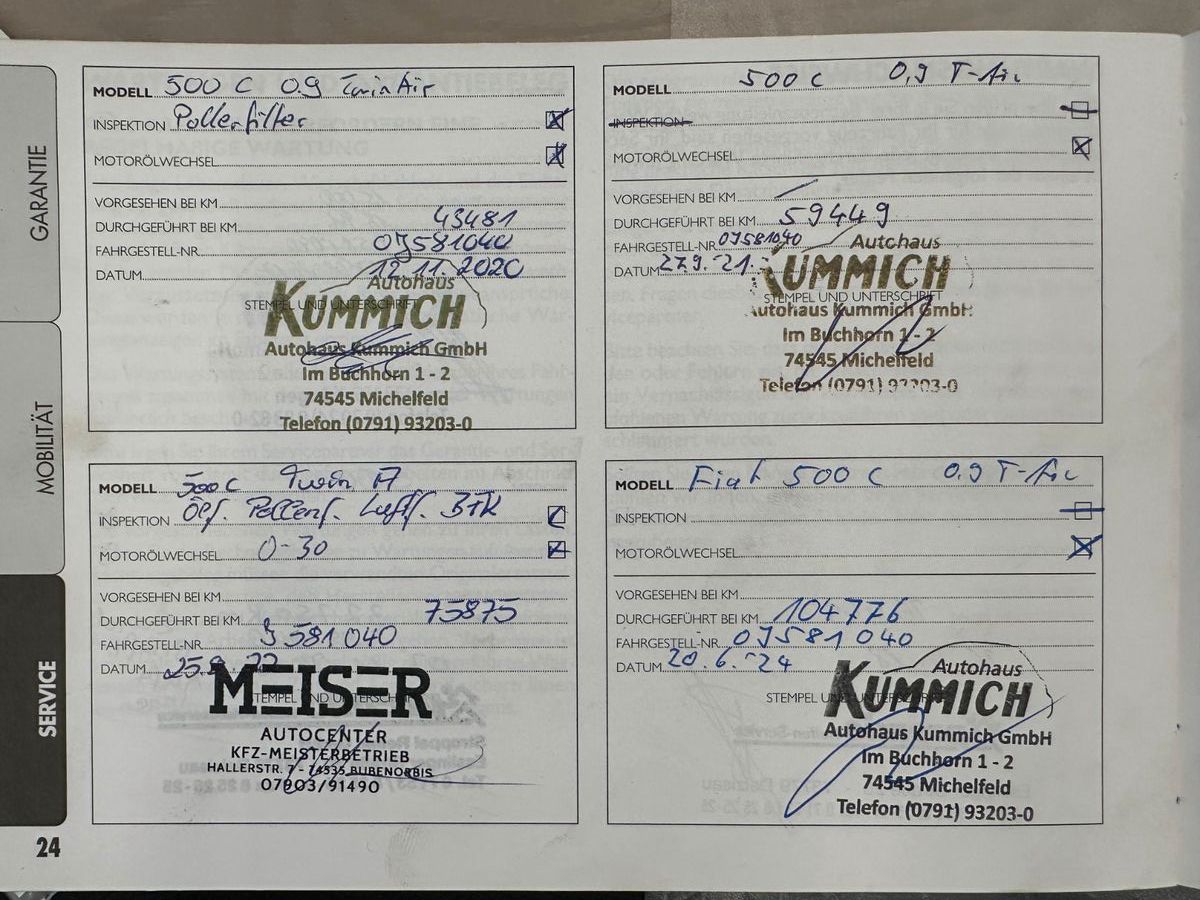 GARANTIE
MOBILITÄT
SERVICE
24
MODELL 500 C 0.9 TwinAir
INSPEKTION Pollenfilter
MOTORÖLWECHSEL
VORGESEHEN BEI KM
DURCHGEFÜHRT BEI KM 43481
FAHRGESTELL-NR. 0J581040
DATUM 12.11.2020
STEMPEL UND UNTERSCHRIFT
Autohaus
KUMMICH
Autohaus Kummich GmbH
Im Buchhorn 1 - 2
74545 Michelfeld
Telefon (0791) 93203-0
MODELL 500 C 0,9 T-Air
INSPEKTION
MOTORÖLWECHSEL
VORGESEHEN BEI KM
DURCHGEFÜHRT BEI KM 59449
FAHRGESTELL-NR. 0J581040
DATUM 27.9.-21
STEMPEL UND UNTERSCHRIFT
Autohaus
KUMMICH
Autohaus Kummich GmbH
Im Buchhorn 1 - 2
74545 Michelfeld
Telefon (0791) 93203-0
MODELL 500 C Twin A
INSPEKTION Ölf. Pollenf. Luftf. BTK
MOTORÖLWECHSEL 0-30
VORGESEHEN BEI KM
DURCHGEFÜHRT BEI KM 75875
FAHRGESTELL-NR. J581040
DATUM
STEMPEL UND UNTERSCHRIFT
MEISER
AUTOCENTER
KFZ-MEISTERBETRIEB
HALLERSTR. 7 - 74535 BUBENORBIS
07903/91490
MODELL Fiat 500 C 0.9 T-Air
INSPEKTION
MOTORÖLWECHSEL
VORGESEHEN BEI KM
DURCHGEFÜHRT BEI KM 104776
FAHRGESTELL-NR. 0J581040
DATUM 20.6.-24
STEMPEL UND UNTERSCHRIFT
Autohaus
KUMMICH
Autohaus Kummich GmbH
Im Buchhorn 1 - 2
74545 Michelfeld
Telefon (0791) 93203-0